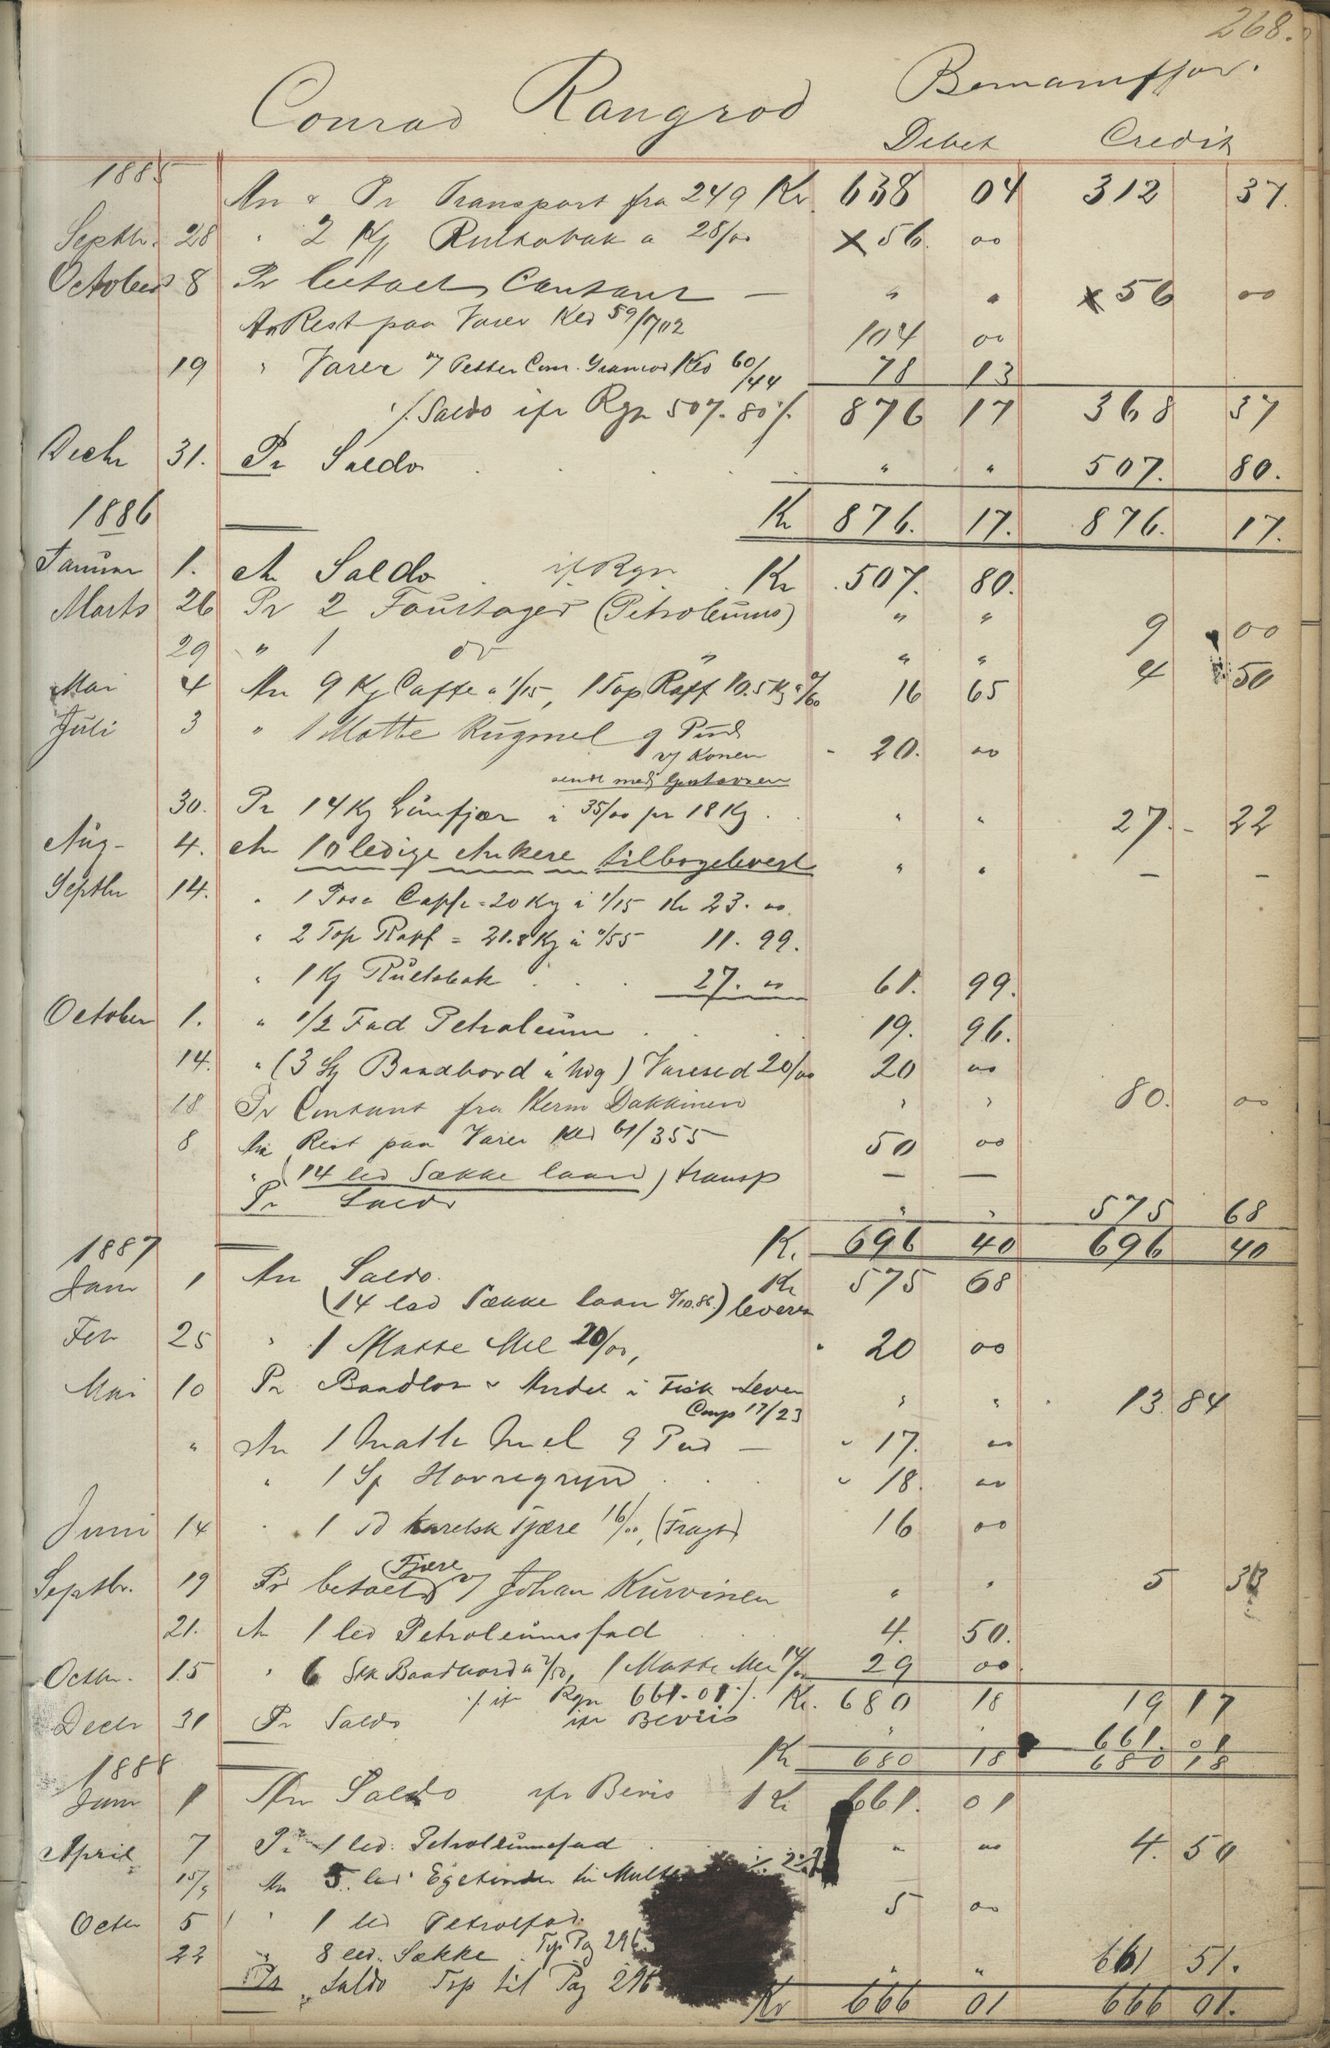 268.
Conrad Rangrod
Debet Credit
1885
An & Pr Transport fra 249 Kr. 638 04 312 37.
Septbr. 28 " 2 Kg Rultobak a 28/00 x 56. 00
October 8 Pr betaelt Contant — " " x 56 00
An Rest paa Varer Kld 59/1702 104 00
19 " Varer v/ Petter Com. Kld 60/144 78 13
./. Saldo ifr Rgn 507.80 ./. 876 17 368 37
Decbr 31. Pr Saldo . . . . " " 507. 80.
1886 Kr 876. 17. 876. 17.
Januar 1. An Saldo . ifr Rgn Kr 507. 80.
Marts 26 Pr 2 Foustager (Petroleums) " " 9 00
29 " 1 do " " " 4 50
Mai 4 An 9 Kg Caffe a 1/15, 1 Top Raff 10.5 Kg a 0/60 16 65
Juli 3 " 1 Matte Rugmel 9 Pud
v/ Konen - 20. 00
sendt med Gustavsen
30. Pr 14 Kg a 35/00 pr 18 Kg . " " 27.- 22
Aug- 4. An 10 ledige Ankere tilbageleveret " " — —
Septbr 14. " 1 Pose Caffe = 20 Kg a 1/15 Kr 23. 00.
" 2 Top Raff = 21.8 Kg a 0/55 11. 99.
" 1 Kg Rultobak . . . 27. 00 61. 99.
October 1. " 1/2 Fad Petroleum . . 19. 96.
14. " (3 Baadbord a ) Varesed 20/00 20 00
18 Pr Contant fra Herm Dakkinen " " 80. 00
8 An Rest paa Varer Kld 61/355 50 00
" (14 led Sække laant) transp — —
Pr Saldo " " 575 68
1887 Kr. 696 40 696 40
Janr 1 An Saldo. Kr 575 68
(14 led Sække laant 8/10.86.) levert
Feb 25 " 1 Matte Mel 20/00, " 20 00
Mai 10 Pr Baadlot & Andel i Fisk Lever
Comp 17/23 " " . 13 84
" An 1 Matte Mel 9 Pud — " 17. 00
" 1 Sp Havregryn . . . " 18. 00
Juni 14 " 1 Td karelsk Tjære 16/00, (Fragt) 16 00
Septbr. 19 Pr betaelt Tjære v/ Johan Kurvinen " " 5 33
21. An 1 led Petroleumsfad . 4. 50.
Octbr. 15 " 6 Stk Baadbord a 2/50, 1 Matte Mel 14/00 29 00
./. ifr Rgn 661.01 ./. Kr. 680 18 19 17
Decbr 31 Pr Saldo ifr Beviis " " 661. 01
1888 Kr 680 18 680 18
Janr 1 An Saldo ifr Bevis Kr 661. 01
April 7 Pr 1 led. Petroleumsfad . " " 4. 50
15/9 An 5 led Egetinder til
Octbr 5 " 1 led Petrolfad. 5 00
22 " 8 led. Sække Tsp Pag 296.
Pr Saldo Tsp til Pag 296 " " 661 51.
Kr 666 01 666 01.